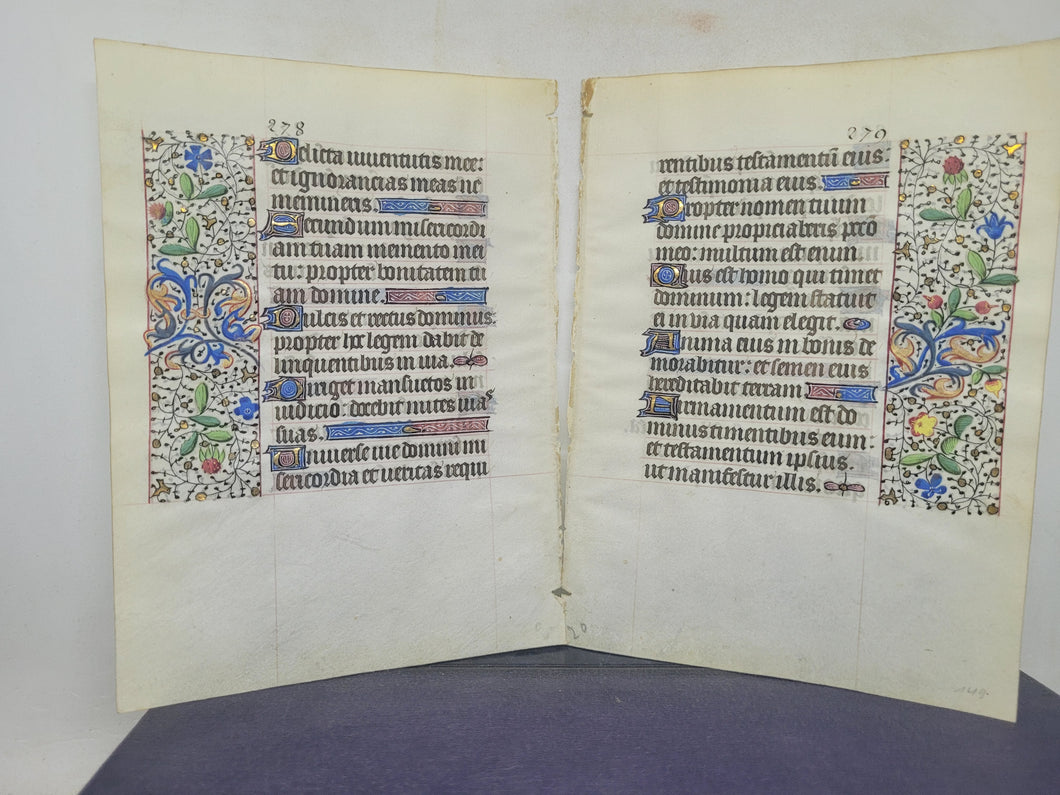 278
Delicta iuventutis mee:
et ignorancias meas ne
memineris.
Secundum misericordi
am tuam memento mei
tu: propter bonitatem tu
am domine.
Dulcis et rectus dominus:
propter hoc legem dabit de
linquentibus in via.
Diriget mansuetos in
iudicio: docebit mites vias
suas.
Universe vie domini mi
sericordia et veritas requi
20
279
rentibus testamentū eius:
et testimonia eius.
Propter nomen tuum
domine propiciaberis pcc̄o
meo: multum est enim
Quis est homo qui timet
dominum: legem statuit
ei in via quam elegit.
Anima eius in bonis de
morabitur: et semen eius
hereditabit terram
Firmamentum est do
minus timentibus eum:
et testamentum ipsius.
ut manifestetur illis.
149.